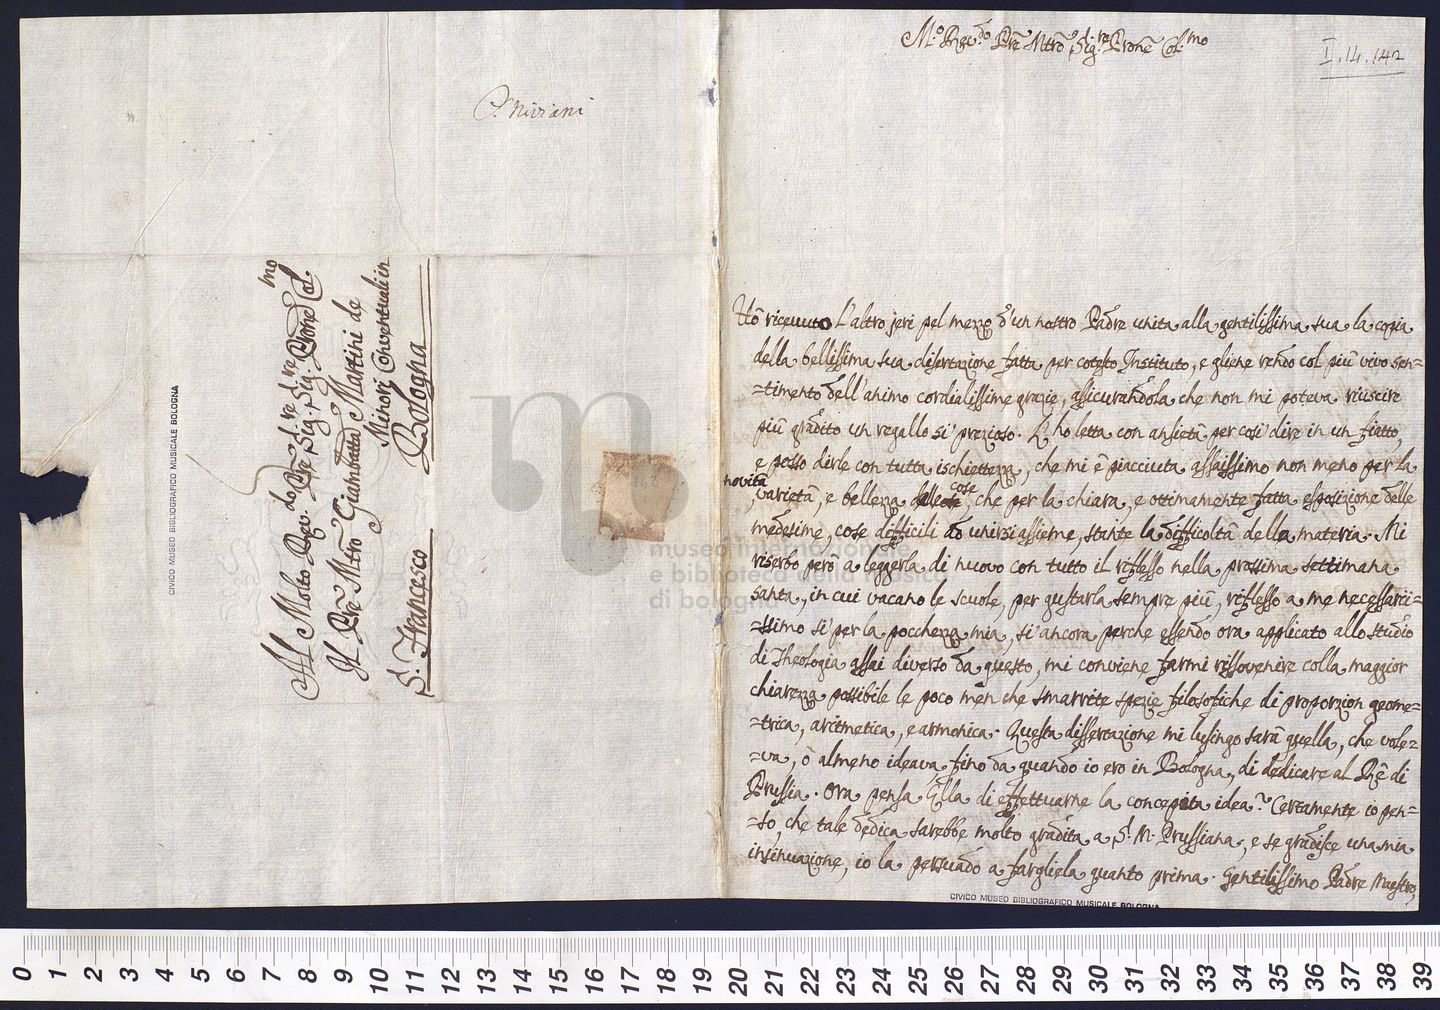 P. Niviani
Al Molto Rev.do Pre Sig. Sig.re Prone Col.mo
Il Pre Mtro Giambatta Martini de
Minori Conventuali in
S. Francesco Bologna
CIVICO MUSEO BIBLIOGRAFICO MUSICALE BOLOGNA
M.o Rev.do Pre Mtro Sig.re Prone Col.mo
I.14.142
Hò ricevuto L'altro jeri pel mezzo d'un nostro Padre unita alla gentilissima sua la copia
della bellissima sua disertazione fatta per cotesto Instituto, e gliene rendo col più vivo sen=
=timento dell'animo cordialissime grazie, assicurandola che non mi poteva riuscire
più gradito un regallo sì prezioso. L'ho letta con ansietà per così dire in un fiatto,
e posso dirle con tutta ischiettezza, che mi è piacciuta assaissimo non meno per la
novità, varietà, e bellezza delle cose, che per la chiara, e ottimamente fatta esposizione delle
medesime, cose difficili ad unirsi assieme, stante la difficoltà della materia. Mi
riserbo però a leggerla di nuovo con tutto il riflesso nella prossima settimana
santa, in cui vacano le scuole, per gustarla sempre più, riflesso a me necessarii=
=ssimo sì per la pocchezza mia, sì ancora perche essendo ora applicato allo studio
di Theologia assai diverso da questo, mi conviene farmi rissovenire colla maggior
chiarezza possibile le poco men che smarrite spezie filosofiche di proporzion geome=
=trica, aritmetica, e armonica. Questa dissertazione mi lusingo sarà quella, che vole=
=va, ò almeno ideava, fino da quando io ero in Bologna, di dedicare al Rè di
Prussia. Ora pensa Ella di effettuarne la concepita idea? Certamente io pen=
=so, che tale dedica sarebbe molto gradita a S. M. Prussiana, e se gradisce una mia
insinuazione, io la persuado a fargliela quanto prima. Gentilissimo Padre Maestro,
CIVICO MUSEO BIBLIOGRAFICO MUSICALE BOLOGNA
museo internazionale
e biblioteca della musica
di bologna
0 1 2 3 4 5 6 7 8 9 10 11 12 13 14 15 16 17 18 19 20 21 22 23 24 25 26 27 28 29 30 31 32 33 34 35 36 37 38 39